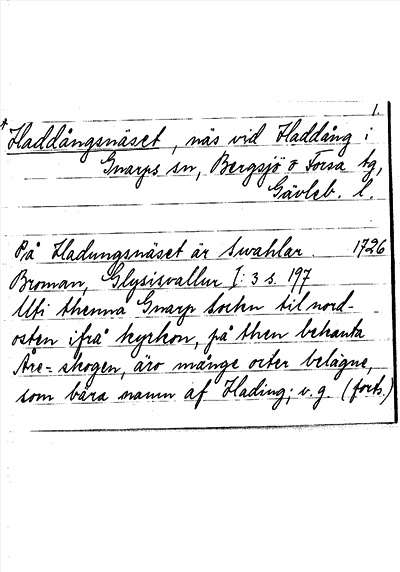 1.
* Haddångsnäset, näs vid Haddång i
Gnarps sn, Bergsjö o Forsa tg,
Gävleb. l.
På Hadungsnäset är Swahlar. 1726
Broman, Glysisvallur I: 3 s. 197
Uti thenna Gnarp sockn til nord-
osten ifrå kyrkon, på then bekanta
Åre-skogen, äro månge orter belägne,
som bära namn af Hading; v.g. (forts.)